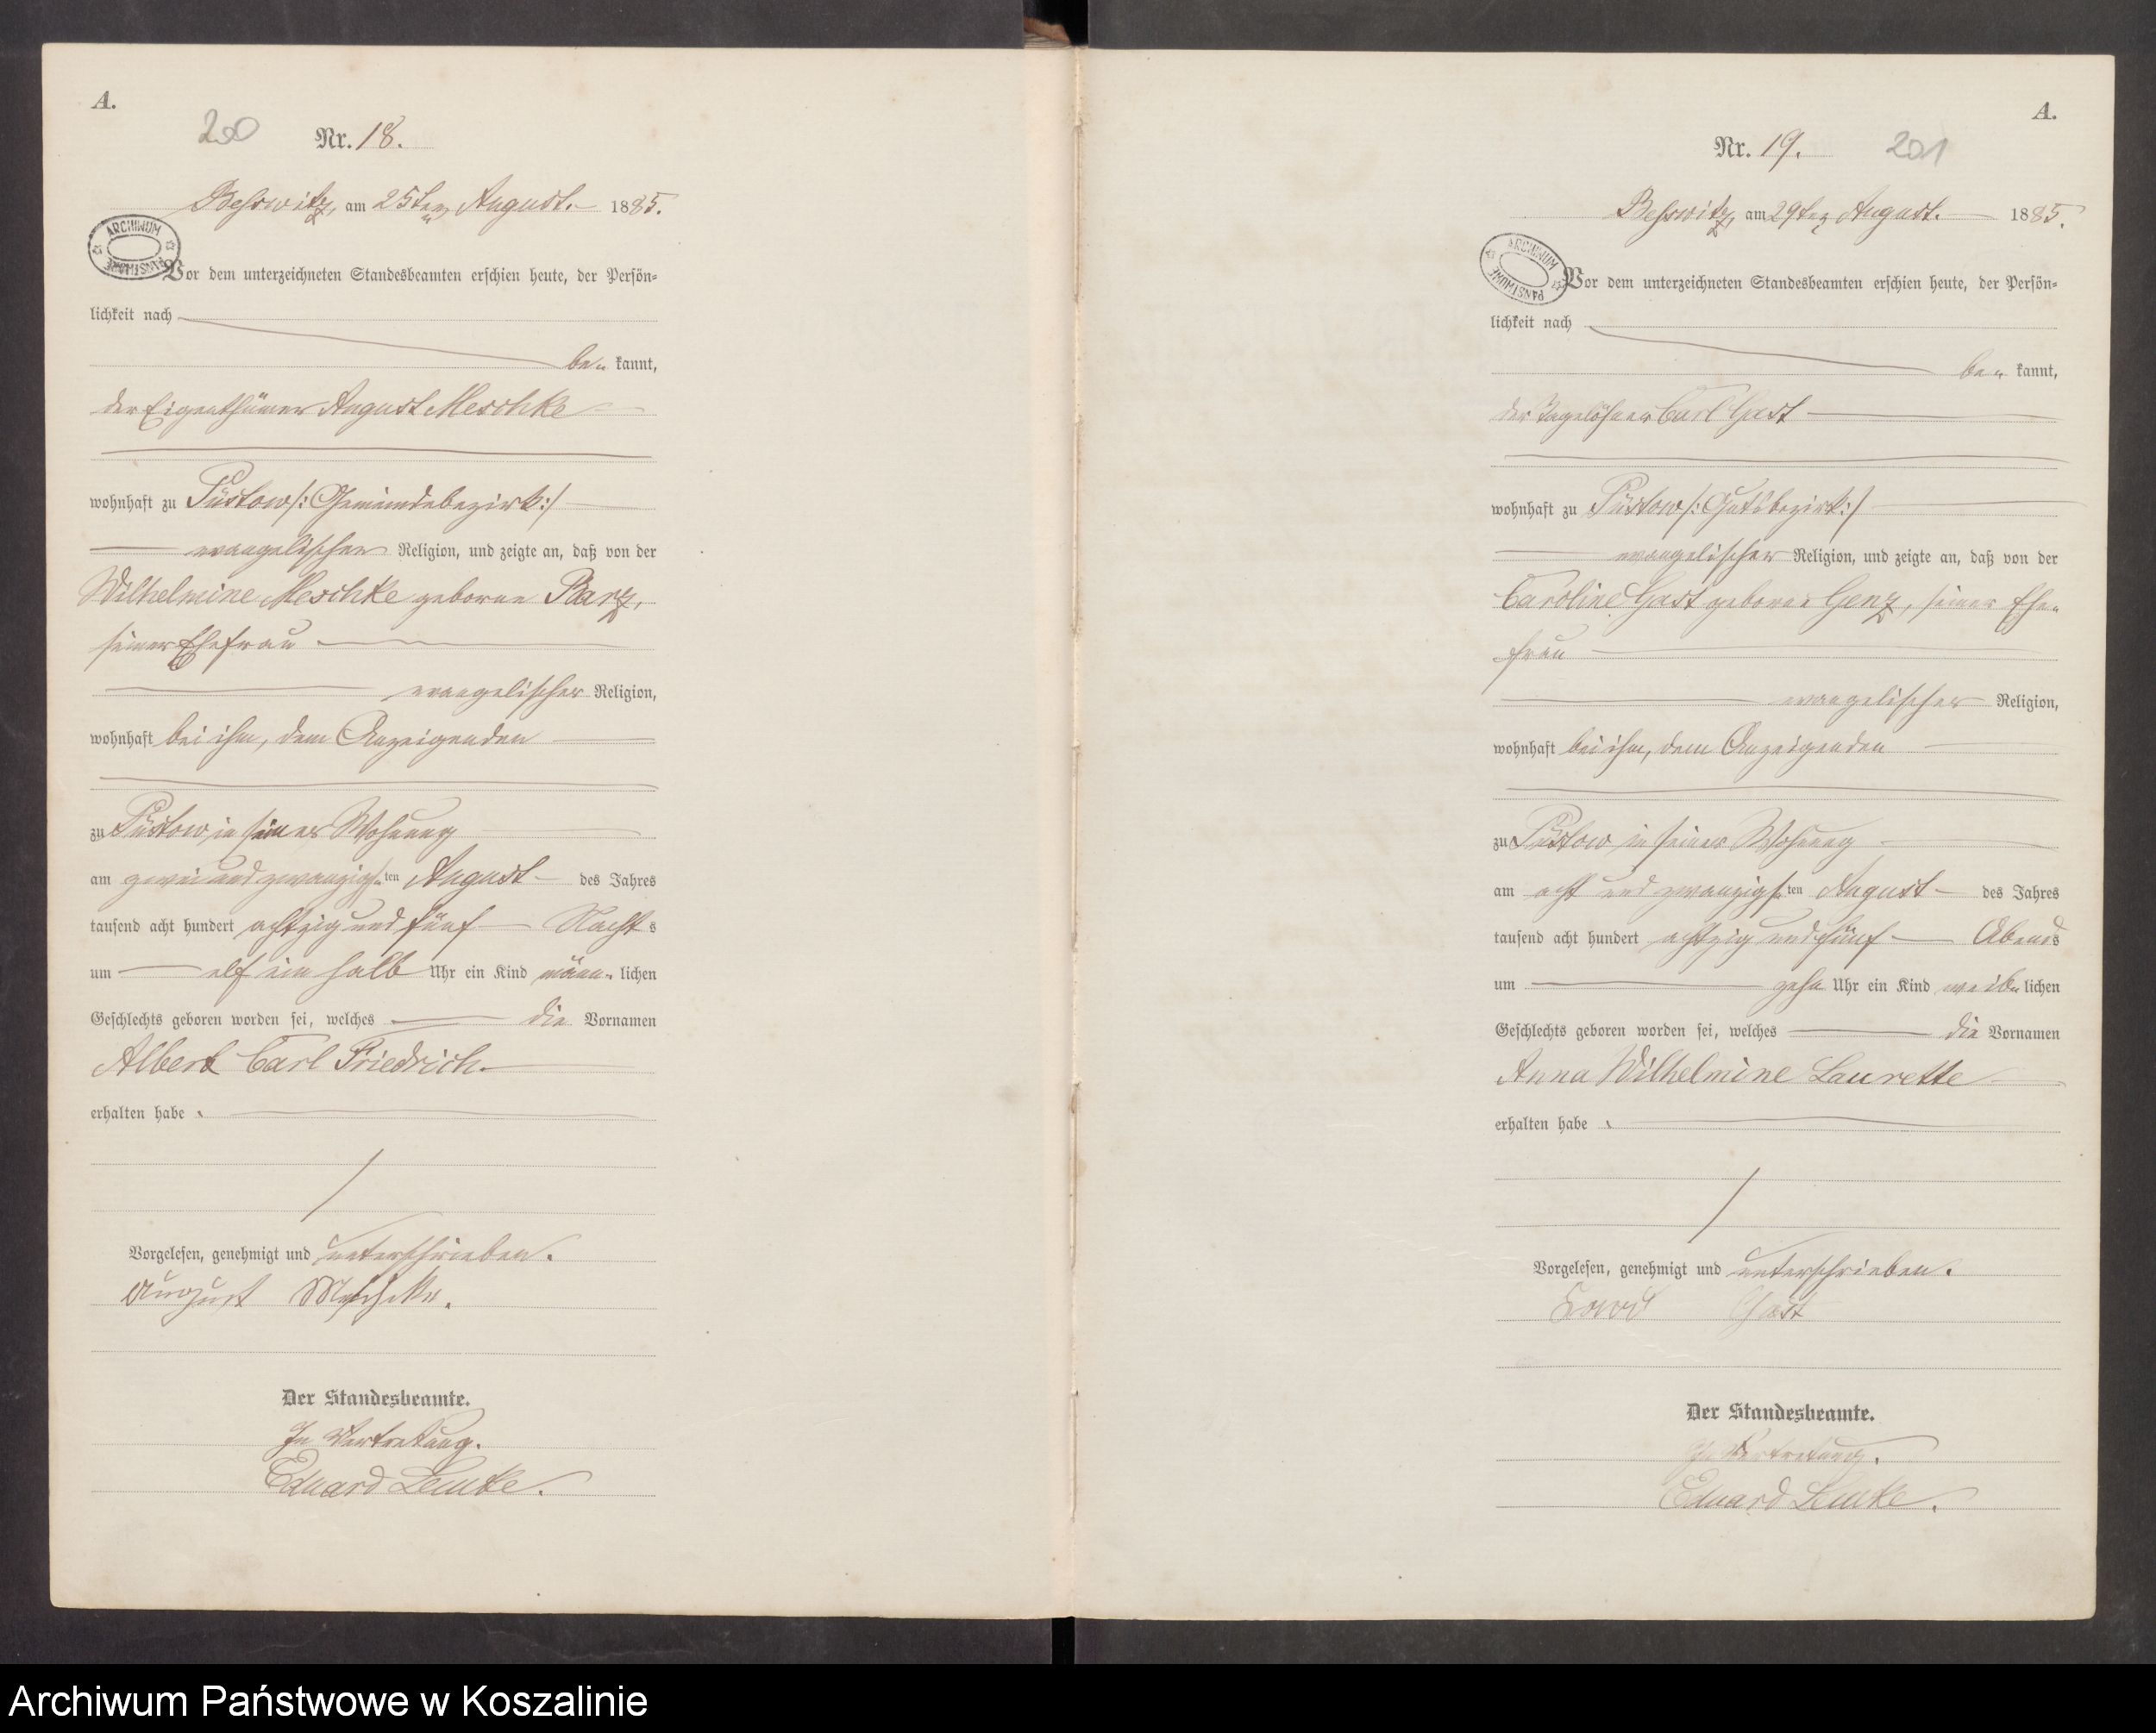 A.
200 Nr. 18.
Beßwitz, am 25ten August. 1885.
ARCHIWUM PAŃSTWOWE
Vor dem unterzeichneten Standesbeamten erschien heute, der Persön=
lichkeit nach
be= kannt,
der Eigenthümer August Meschke
wohnhaft zu Püstow /: Gemeindebezirk :/
evangelischer Religion, und zeigte an, daß von der
Wilhelmine Meschke geborne Barz,
seiner Ehefrau
evangelischer Religion,
wohnhaft bei ihm, dem Anzeigenden
zu Püstow in seiner Wohnung
am zwei und zwanzigsten August des Jahres
tausend acht hundert achtzig und fünf Nachts
um elf ein halb Uhr ein Kind männ= lichen
Geschlechts geboren worden sei, welches die Vornamen
Albert Carl Friedrich
erhalten habe.
Vorgelesen, genehmigt und unterschrieben.
August Meschke.
Der Standesbeamte.
In Vertretung.
Eduard Lemke.
A.
Nr. 19. 201
Beßwitz, am 29ten August. 1885.
ARCHIWUM PAŃSTWOWE
Vor dem unterzeichneten Standesbeamten erschien heute, der Persön=
lichkeit nach
be= kannt,
der Tagelöhner Carl Gast
wohnhaft zu Püstow /: Gutsbezirk :/
evangelischer Religion, und zeigte an, daß von der
Caroline Gast geborne Genz, seiner Ehe=
frau
evangelischer Religion,
wohnhaft bei ihm, dem Anzeigenden
zu Püstow in seiner Wohnung
am acht und zwanzigsten August des Jahres
tausend acht hundert achtzig und fünf Abends
um zehn Uhr ein Kind weib= lichen
Geschlechts geboren worden sei, welches die Vornamen
Anna Wilhelmine Laurette
erhalten habe.
Vorgelesen, genehmigt und unterschrieben.
Gast
Der Standesbeamte.
In Vertretung.
Eduard Lemke.
Archiwum Państwowe w Koszalinie